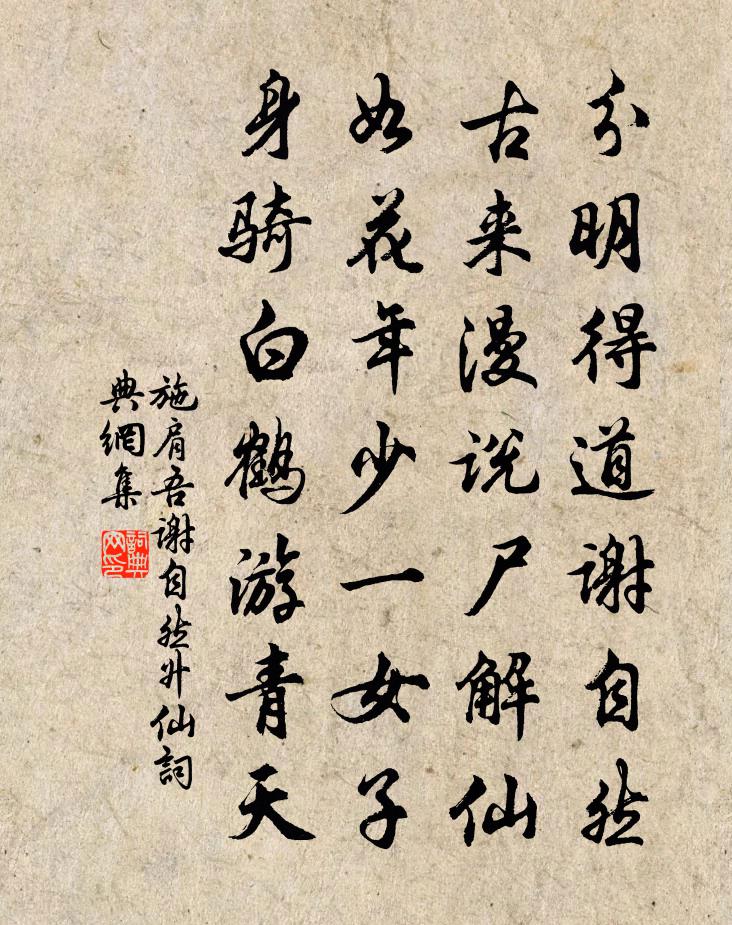 分明得道谢自然
古来漫说尸解仙
如花年少一女子
身骑白鹤游青天
施肩吾谢自然升仙詞
典網集
詞典网印